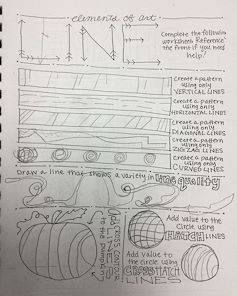 elements of art
LINE
Complete the following
worksheet. Reference
the front if you need
help!
Create a pattern
using only
VERTICAL LINES
Create a pattern
using only
HORIZONTAL LINES
Create a pattern
using only
DIAGONAL LINES
Create a pattern
using only
ZIGZAG LINES
Create a pattern
using only
CURVED LINES
Draw a line that shows a variety in line quality
Add CROSS CONTOUR
LINES
to the pumpkin
Add value to the
Circle using
HATCH LINES
Add value to the
circle using
CROSSHATCH
LINES